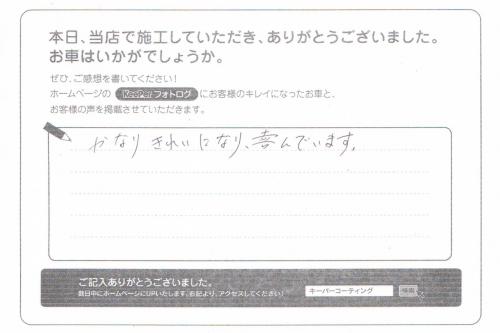 本日、当店で施工していただき、ありがとうございました。
お車はいかがでしょうか。
ぜひ、ご感想を書いてください！
ホームページの KeePer フォトログ にお客様のキレイになったお車と、
お客様の声を掲載させていただきます。
かなり きれいになり、喜んでいます。
ご記入ありがとうございました。
数日中にホームページにUPいたします。右記より、アクセスしてください！
キーパーコーティング 検索